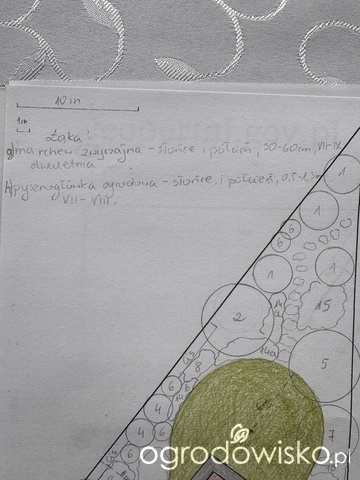 10 m
1m
Łąka:
g) marchew zwyczajna - słońce i półcień, 50-60cm, VII-IX
dwuletnia
h) pysznogłówka ogrodowa - słońce i półcień, 0,5-1,3m
VII-VIII.
1
1
6
6
1
1
15
2
14a
5
8
6
14b
4
6
7
4
6
ogrodowisko.pl